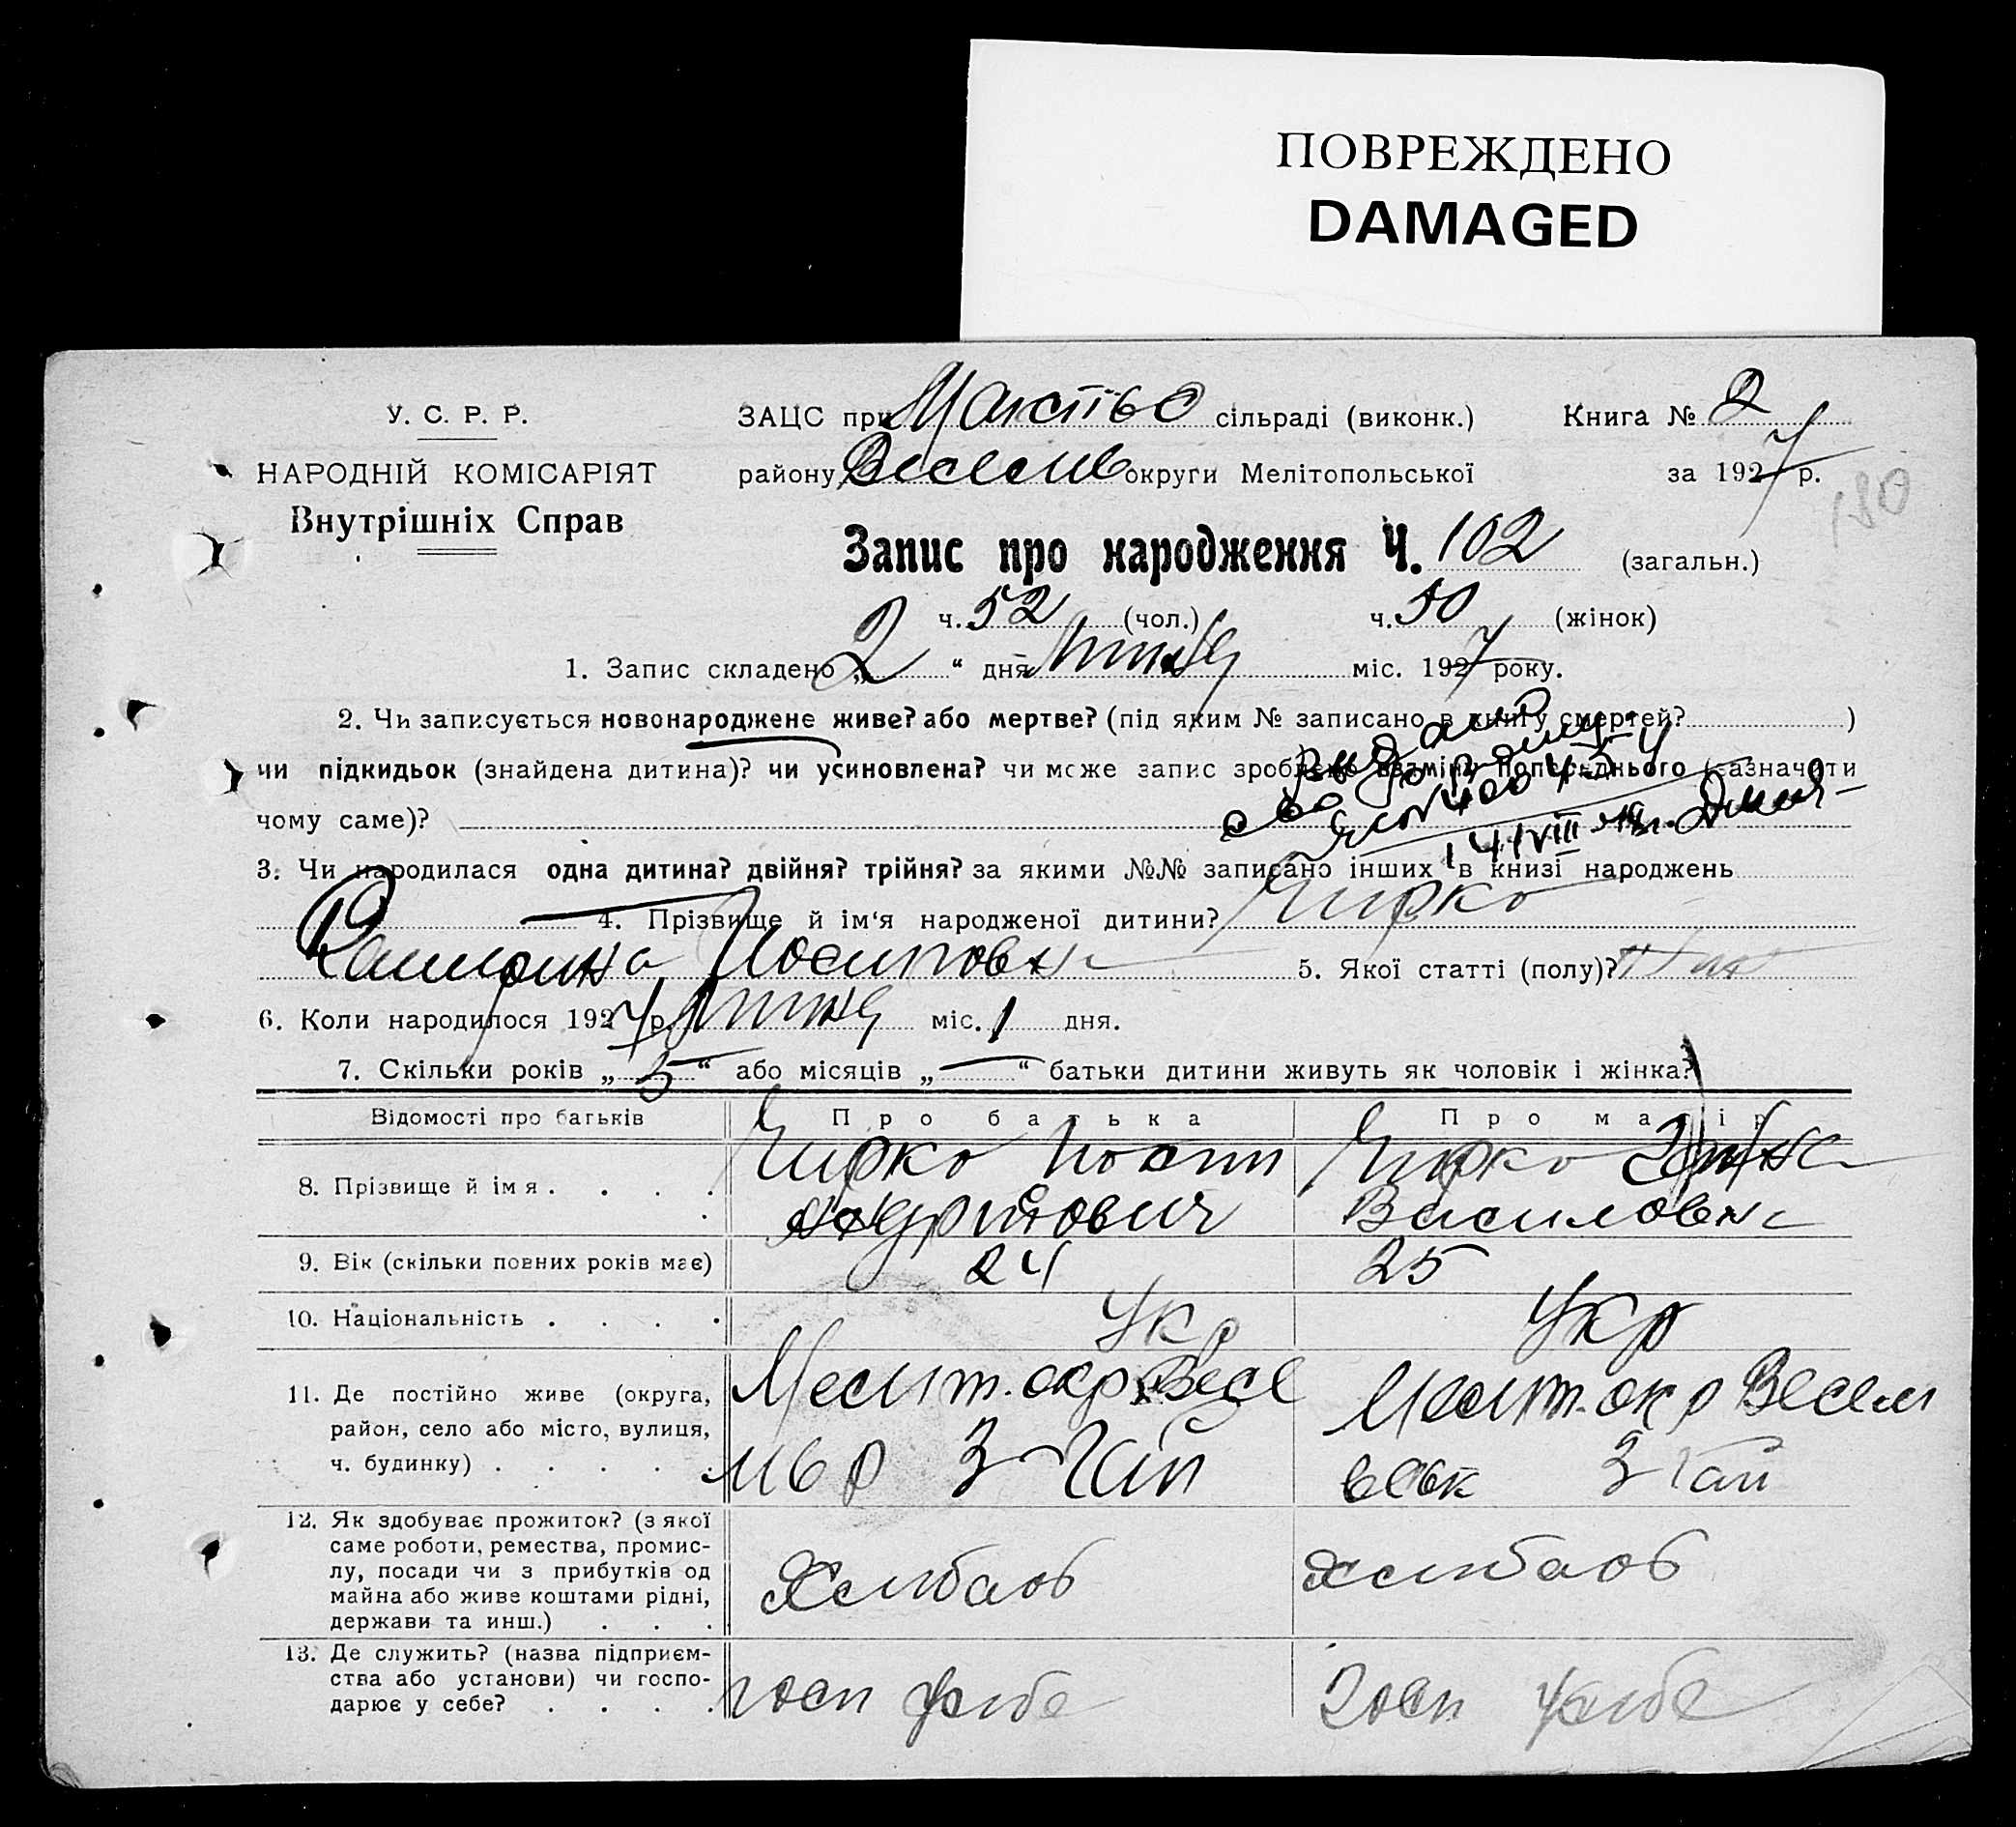 ПОВРЕЖДЕНО
DAMAGED
У. С. Р. Р.
НАРОДНІЙ КОМІСАРІЯТ
Внутрішніх Справ
ЗАЦС при сільраді (виконк.) Книга № 2
району Веселів округи Мелітопольської за 1927 р.
190
Запис про народження Ч. 102 (загальн.)
ч. 52 (чол.) ч. 50 (жінок)
1. Запис складено „ 2 “ дня Липня міс. 1927 року.
2. Чи записується новонароджене живе? або мертве? (під яким № записано в книгу смертей? )
чи підкидьок (знайдена дитина)? чи усиновлена? чи може запис зроблено взаміну попереднього (зазначити
чому саме)?
3. Чи народилася одна дитина? двійня? трійня? за якими №№ записано інших в книзі народжень
4. Прізвище й ім‘я народженої дитини? Чирко
Йосиповн 5. Якої статті (полу)?
6. Коли народилося 1927 р. Липня міс. 1 дня.
7. Скільки років „ 5 “ або місяців „ — “ батьки дитини живуть як чоловік і жінка?
Відомості про батьків Про батька Про матір
8. Прізвище й імя . . . . Чирко Йосип Чирко
Василовн
9. Вік (скільки повних років має) 24 25
10. Національність . . . . Укр Укр
11. Де постійно живе (округа, Мелит. окр Весе Мелит. окр Весели
район, село або місто, вулиця,
ч. будинку) . . . . . лів р З Гай З Гай
12. Як здобуває прожиток? (з якої
саме роботи, ремества, промис-
лу, посади чи з прибутків од
майна або живе коштами рідні, Хлибаоб хлибаоб
держави та инш.) . . .
13. Де служить? (назва підприєм-
ства або установи) чи госпо-
дарює у себе? . . . . госп усибе госп усибе